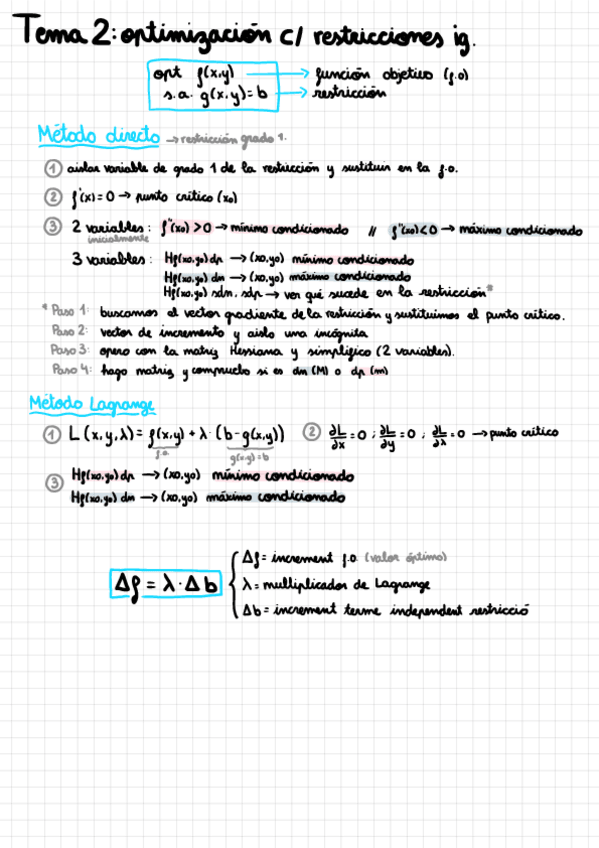 Tema 2: optimización c/ restricciones ig.
opt f(x,y) → función objetivo (f.o)
s.a. g(x,y)=b → restricción
Método directo → restricción grado 1.
① aislar variable de grado 1 de la restricción y sustituir en la f.o.
② f'(x)=0 → punto crítico (x0)
③ 2 variables: f''(x0)>0 → mínimo condicionado // f''(x0)<0 → máximo condicionado
inicialmente
3 variables: Hf(x0,y0) dp → (x0,y0) mínimo condicionado
Hf(x0,y0) dn → (x0,y0) máximo condicionado
Hf(x0,y0) sdn, sdp → ver qué sucede en la restricción*
* Paso 1: buscamos el vector gradiente de la restricción y sustituimos el punto crítico.
Paso 2: vector de incremento y aislo una incógnita
Paso 3: opero con la matriz Hessiana y simplifico (2 variables).
Paso 4: hago matriz y compruebo si es dn (M) o dp (m)
Método Lagrange
① L(x,y,λ)= f(x,y) + λ·(b-g(x,y)) ② ∂L/∂x=0 ; ∂L/∂y=0 ; ∂L/∂λ=0 → punto crítico
f.o. g(x,y)=b
③ Hf(x0,y0) dp → (x0,y0) mínimo condicionado
Hf(x0,y0) dn → (x0,y0) máximo condicionado
Δf = λ·Δb
Δf= increment f.o. (valor óptimo)
λ= multiplicador de Lagrange
Δb= increment terme independent restricció